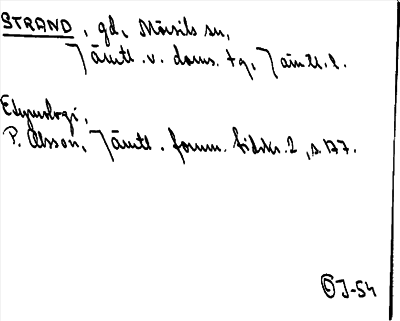 STRAND, gd, Mörsils sn,
Jämtl. v. doms. tg, Jämtl. l.
Etymologi,
P. Olsson, Jämtl. fornm. tidskr. 2, s. 177.
OJ-54